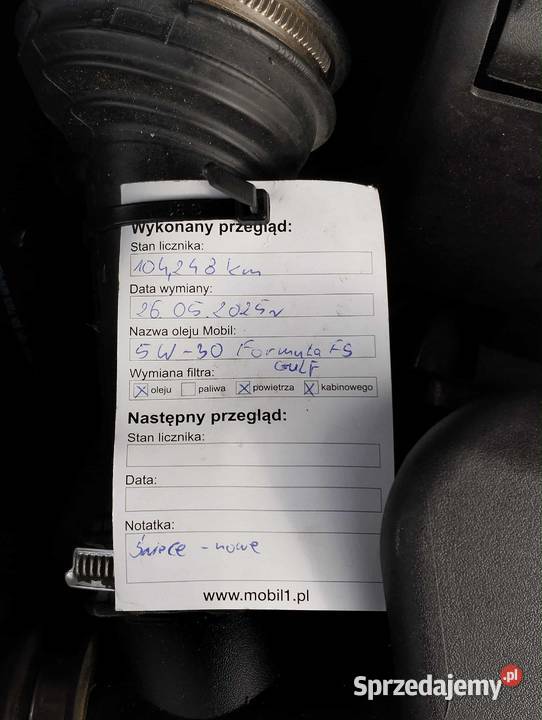 Wykonany przegląd:
Stan licznika:
104,248 km
Data wymiany:
26.05.2025r
Nazwa oleju Mobil:
5W-30 Formula FS
GULF
Wymiana filtra:
X oleju paliwa X powietrza X kabinowego
Następny przegląd:
Stan licznika:
Data:
Notatka:
Świece - nowe
www.mobil1.pl
Sprzedajemy.pl